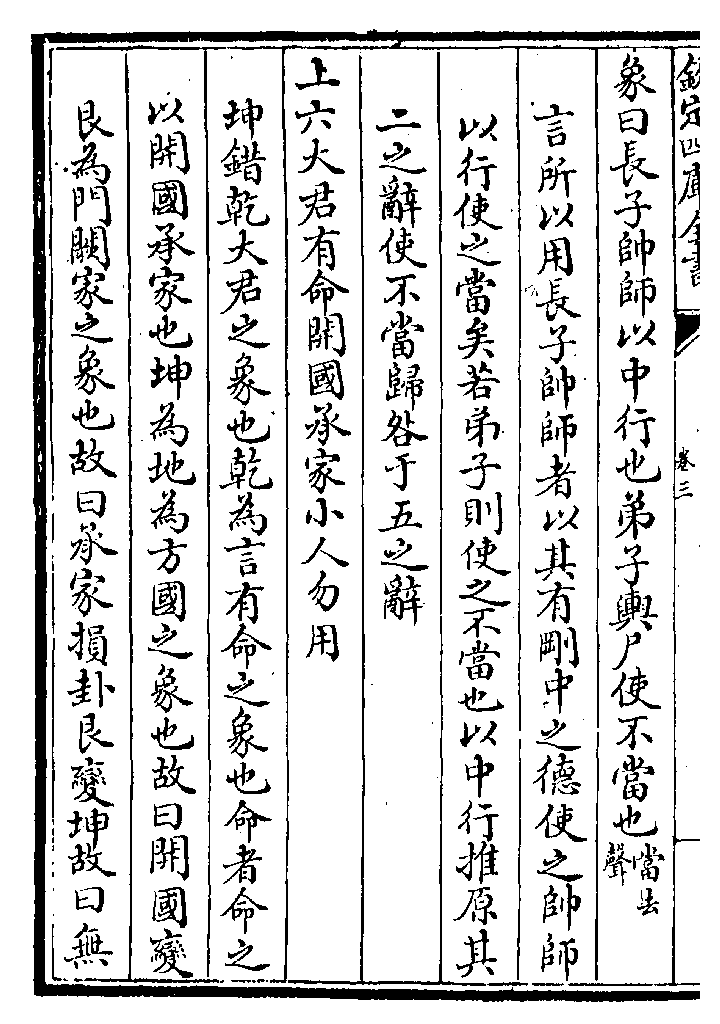 欽定四庫全書
卷三
象曰長子帥師以中行也弟子輿尸使不當也當去聲
言所以用長子帥師者以其有剛中之德使之帥師
以行使之當矣若弟子則使之不當也以中行推原其
二之辭使不當歸咎于五之辭
上六大君有命開國承家小人勿用
坤錯乾大君之象也乾為言有命之象也命者命之
以開國承家也坤為地為方國之象也故曰開國變
艮為門闕家之象也故曰承家損卦艮變坤故曰無